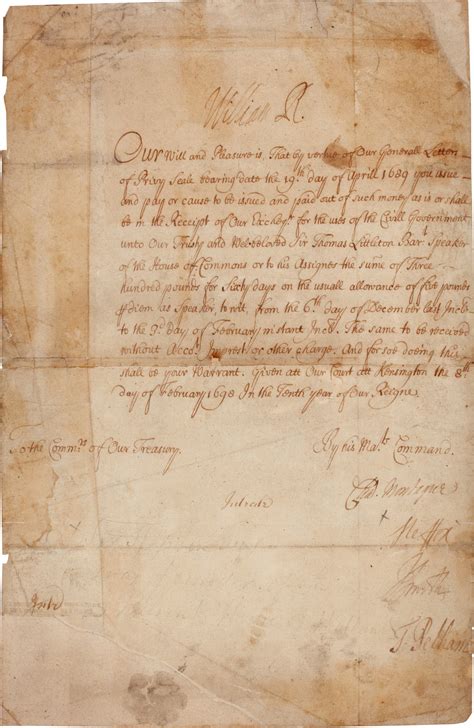 William R.
Our Will and Pleasure is, That by vertue of Our Generall Letters
of Privy Seale bearing date the 19th day of Aprill 1689 you issue
and pay or cause to be issued and paid out of such money as is or shall
be in the Receipt of Our Excheqr for the uses of the Civill Government
unto Our Trusty and Welbeloved Sir Thomas Littleton Bart Speaker
of the House of Commons or to his Assignes the sume of Three
hundred pounds for Sixty days on the usuall allowance of five pounds
℘ diem as Speaker to wit, from the 6th day of December last Inclu
to the 3d day of February instant Incl. The same to be received
without Accot Imprest or other charge. And for soe doeing this
shall be your Warrant. Given att Our Court att Kensington the 8th
day of February 1698 In the Tenth year of Our Reigne
To the Commrs of Our Treasury.
By his Mats Command.
J Smith
T: Pelham